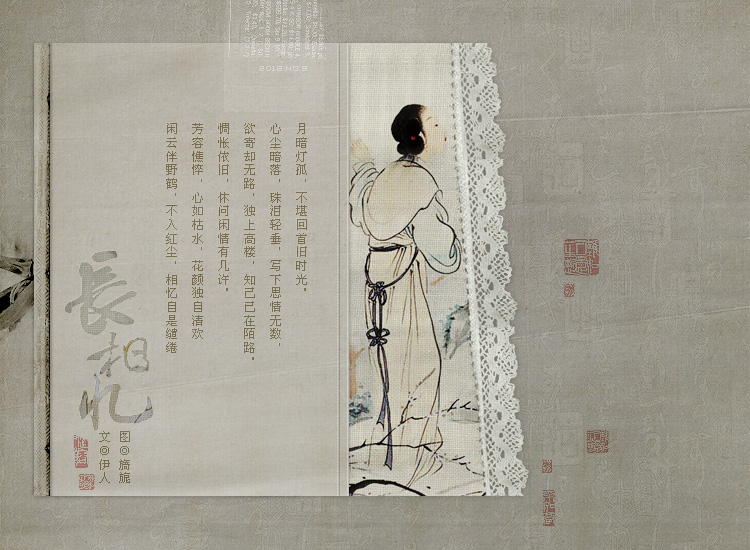 月暗灯孤，不堪回首旧时光。
心尘暗落，珠泪轻垂，写下思情无数，
欲寄却无路，独上高楼，知己已在陌路。
惆怅依旧，休问闲情有几许。
芳容憔悴，心如枯水，花颜独自清欢
闲云伴野鹤，不入红尘，相忆自是缱绻
長相忆
图◎旖旎
文◎伊人